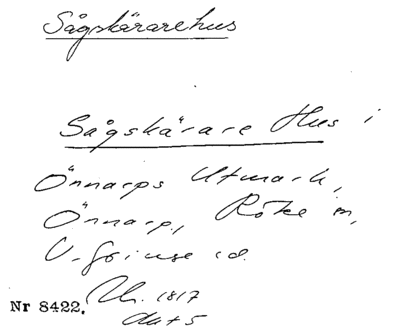 Sågskärarehus
Sågskärare Hus i
Önnarps Utmark,
Önnarp, Röke sn,
V. Göinge hd.
Nr 8422. Lh. 1817
Akt 5